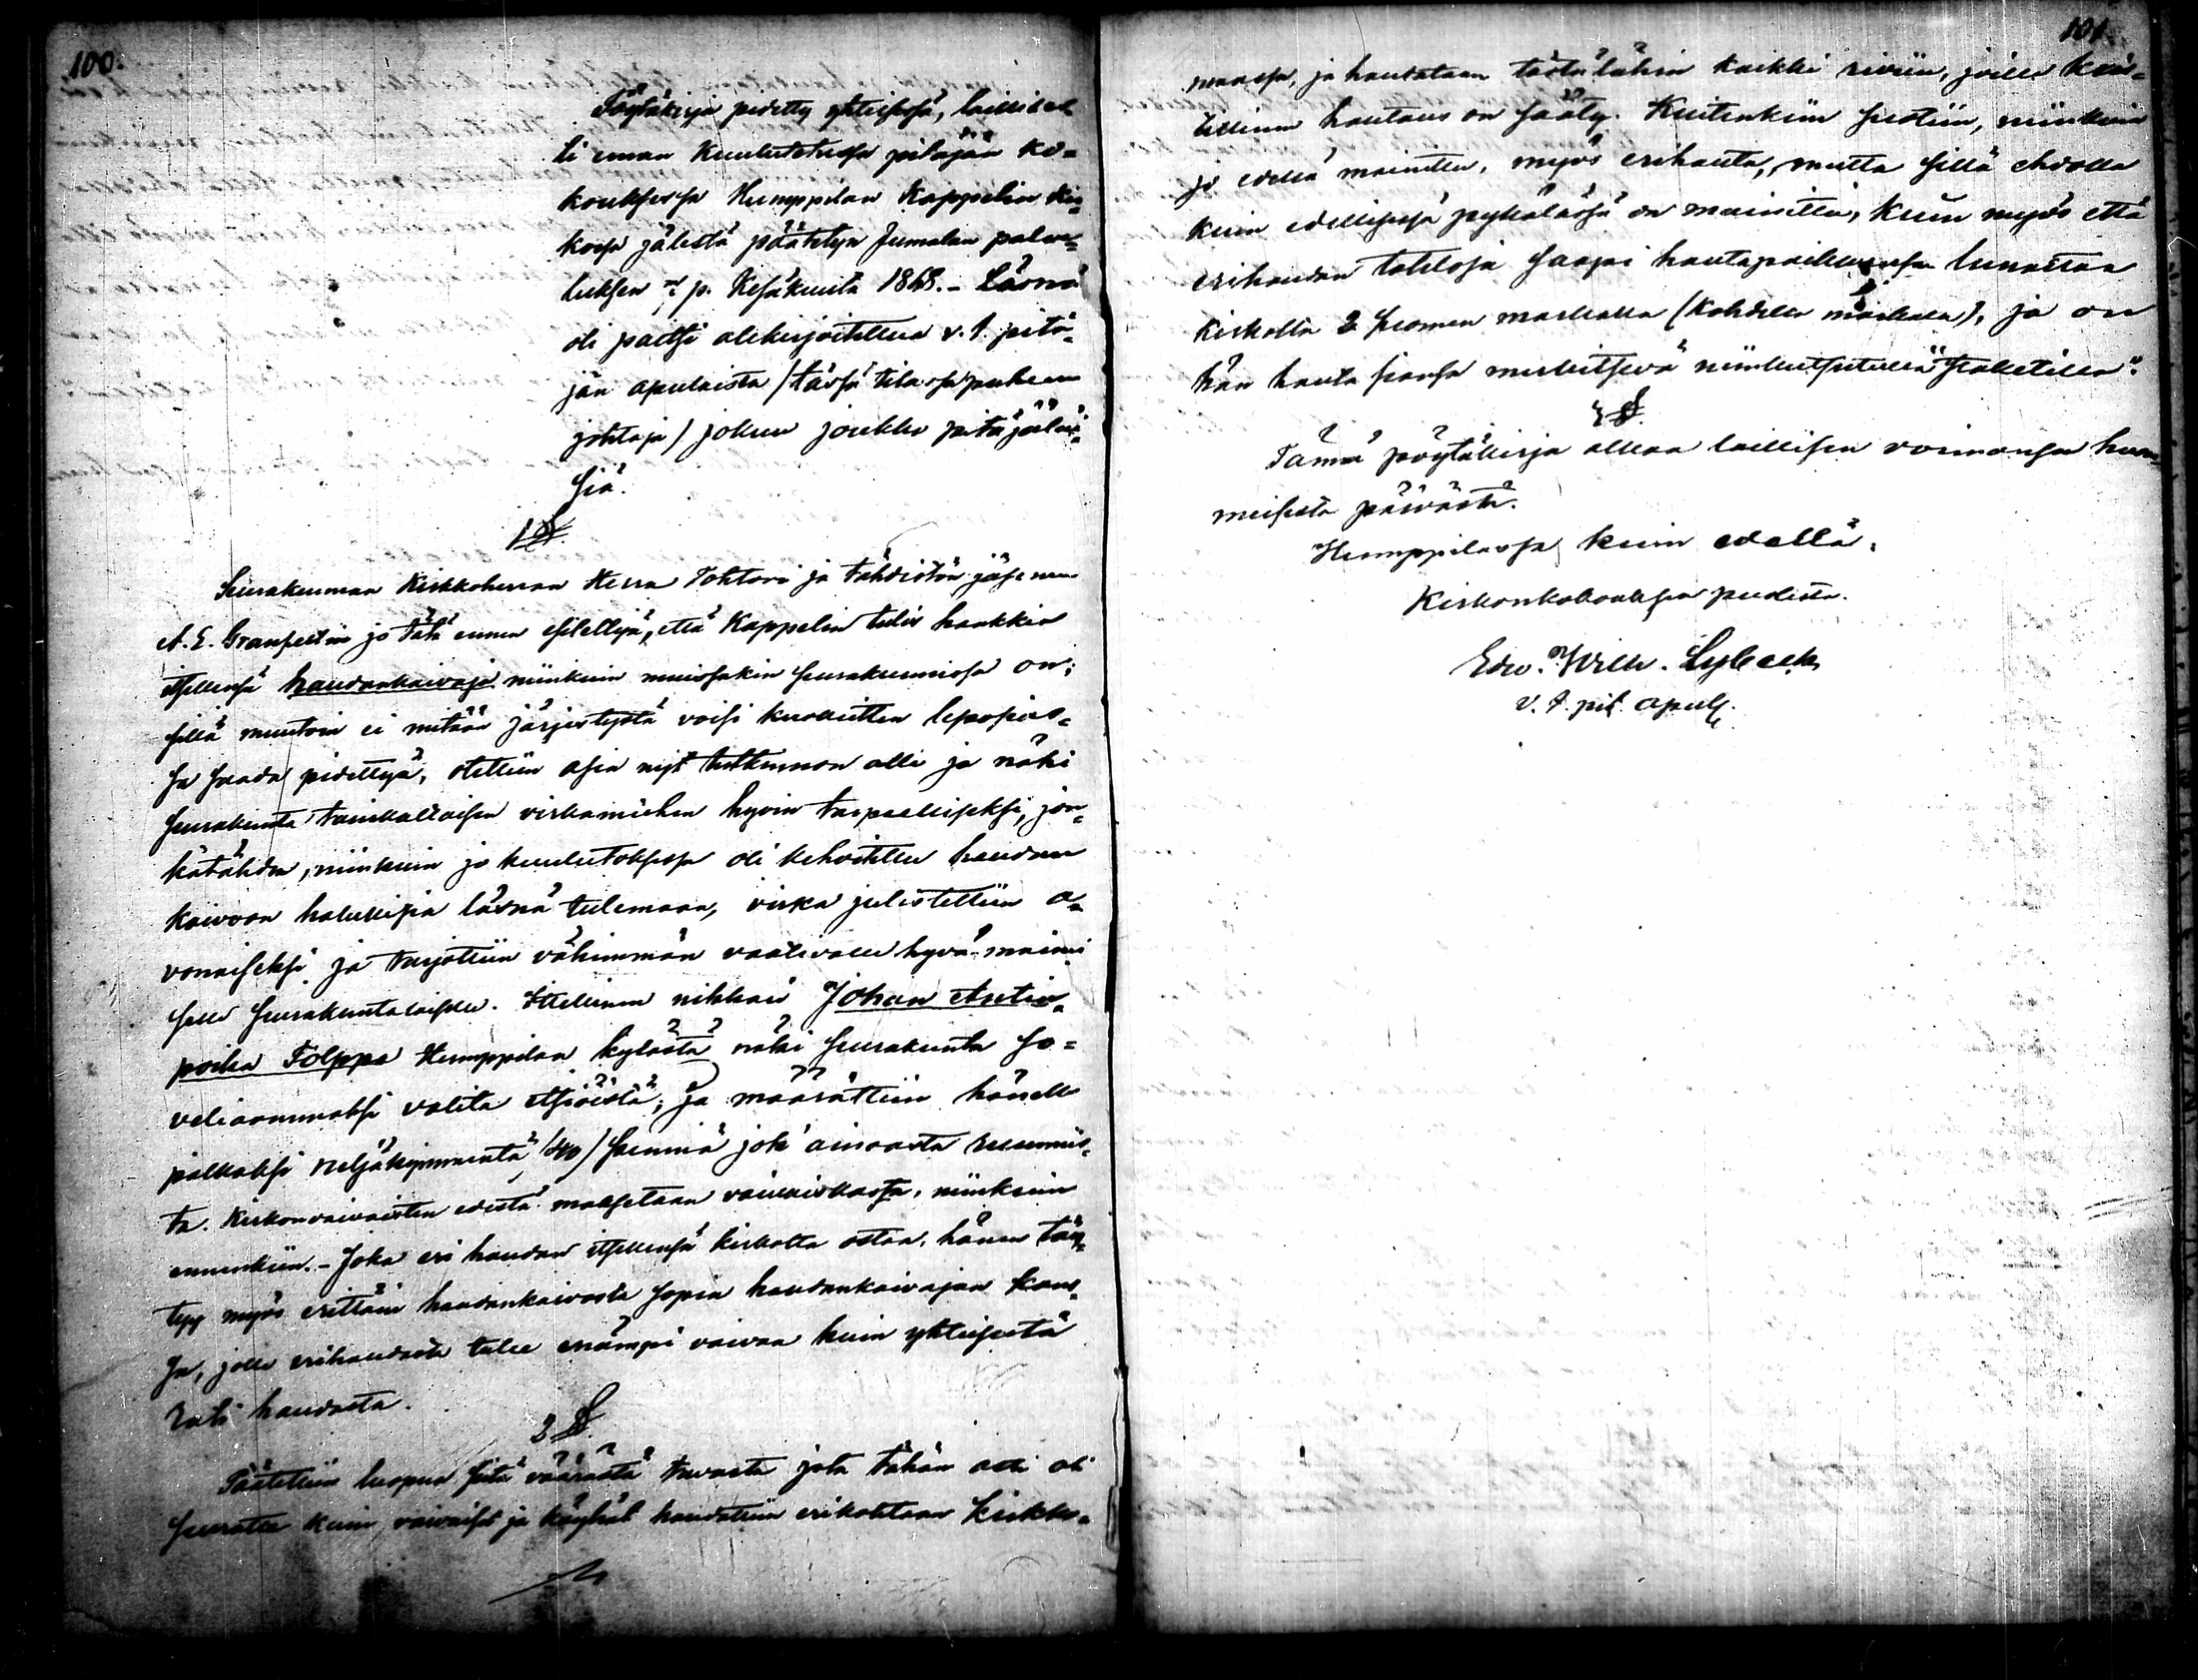 100.
Pöytäkirja pidetty yhteisesä, laillisest
ti eman kuulutetussa pitäjän ko=
kouksessa Humppilan Kappelin kir=
kossa jälestä päätetyn Jumalan palve=
luksen p. Kesäkuuta 1868. - Läsnä
oli paitsi allekirjoitettua v. t. pitä=
jän apulaista /tässä tilassa puheen
johtaja/ joku joukko pitäjäläi=
siä.
1 §.
Seurakunnan Kirkkoherran Herra Tohtori ja Tähdistön jäsenen
A. E. Granfeltin jo tätä ennen esitettyä, että Kappelin tulis hankkia
itsellensä haudankaivaja niinkuin muissakin seurakunnissa on;
sillä muutoin ei mitään järjestystä voisi kuolutten lepopais=
sa saada pidettyä, otettiin asia nyt tutkinnon alle ja näki
seurakunta tämkaltaisen virkamiehen hyvin tarpeelliseksi, jon=
kätähden, niinkuin jo kuulutoksessa oli kehoitettu haudan
kaivoon halullisia läsnä tulemaan, virka julistettiin a=
vonaiseksi ja tarjottiin vähimmän vaativalle hyvä-maini
selle seurakuntalaiselle. Itsellinen nikkari Johan Antin=
poika Tolppa Humppilan kylästä näki seurakunta so=
veliaammaksi valita etsiöistä; ja määrättiin hänelle
palkaksi neljäkymmentä /40/ penniä jok' ainoasta ruumiis=
ta. Kirkonvaivaisten edestä maksetaan vaivaiskassa, niinkuin
ennenkin. - Joka eri haudan itsellensä kirkolta ostaa, hänen täy=
tyy myös erittäin haudankaivosta sopia haudankaivajan kans=
sa, jolle erihaudasta tulee enämpi vaivaa kuin yhteisestä
rivi haudasta.
2 §.
Päätettiin luopua siitä väärästä tavasta jota tähän asti oli
seurattu kuin, vaivaiset ja köyhät haudattiin erikohtaan kirkko=
101.
maassa, ja haudataan tästälähin kaikki riviin, joille kris=
tillinen hautaus on säätty. Kuitenkin suotiin, niinkuin
jo edellä mainittu, myös erihauta, mutta sillä ehdolla
kuin edellisesä pykälässä on mainittu, kuin myös että
erihaudan tahtoja saapi hautapaikkansa lunastaa
kirkolta 2 Suomen markalla (kahdella markalla), ja on
hän hauta siansa merkitsevä niinkutsutulla "staketilla".
3 §.
Tämä pöytäkirja alkaa laillisen voimansa huo=
meisesta päivästä.
Humppilassa kuin edellä.
Kirkonkokouksen puolesta.
Edw. Wilh. Lybeck
v. t. pit. apul.